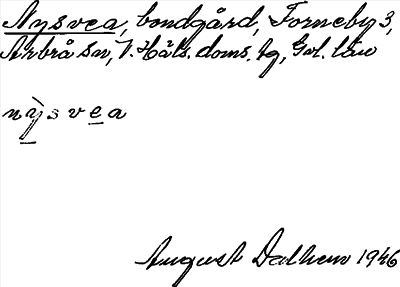 Nysvea, bondgård, Forneby 3,
Arbrå sn, V. Häls. doms. lg, Gvl. län
nỳsvea
August Dalhem 1946